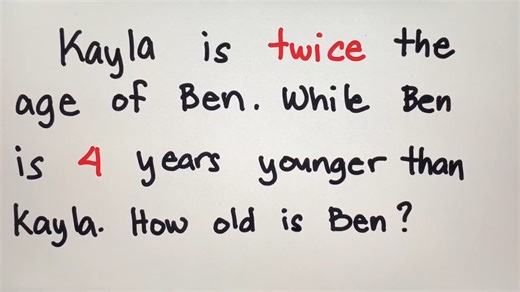 Kayla is twice the
age of Ben. While Ben
is 4 years younger than
Kayla. How old is Ben?